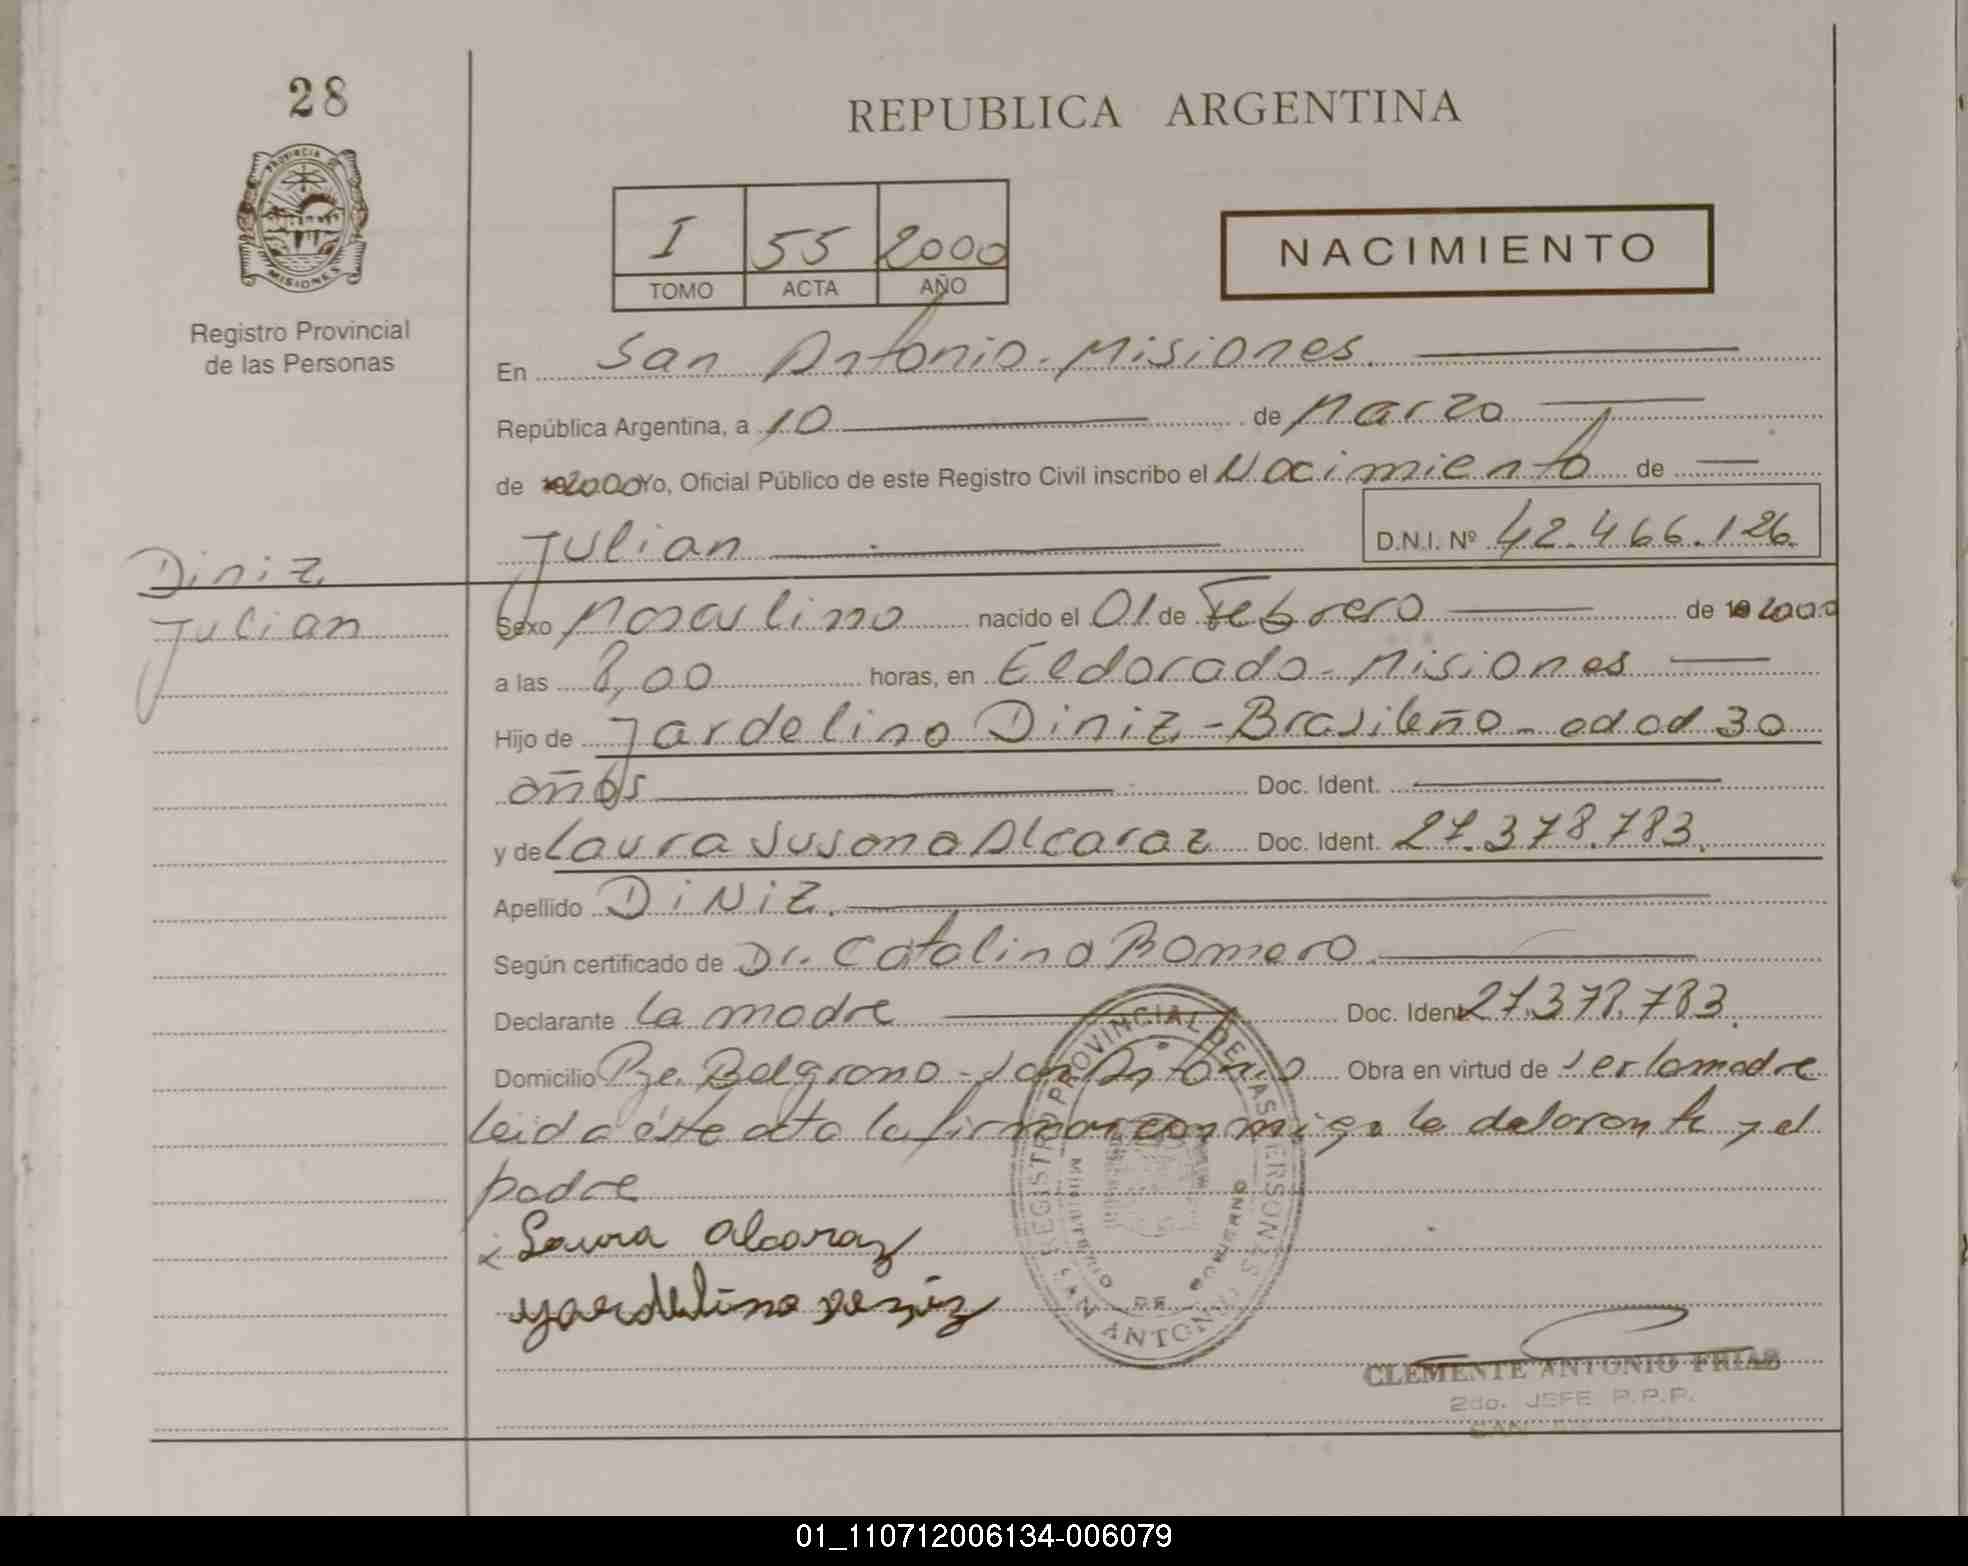 28
REPUBLICA ARGENTINA
PROVINCIA DE
MISIONES
Registro Provincial
de las Personas
I 55 2000
TOMO ACTA AÑO
NACIMIENTO
En San Antonio - Misiones.
República Argentina, a 10 de Marzo
de 2000 Yo, Oficial Público de este Registro Civil inscribo el Nacimiento de
Julian D.N.I. Nº 42.466.126.
Diniz
Julian
Sexo Masculino nacido el 01 de Febrero de 19 2000
a las 8,00 horas, en Eldorado - Misiones
Hijo de Jardelino Diniz - Brasileño - edad 30
años Doc. Ident.
y de Laura Susana Alcaraz Doc. Ident. 27.378.783.
Apellido DiNiZ.
Según certificado de Dr. Catalino Romero.
Declarante la madre Doc. Ident 27.378.783.
Domicilio Pje. Belgrano - San Antonio Obra en virtud de ser la madre
leida éste acta la firman conmigo la y el
padre
Laura alcaraz
yardelino
REGISTRO PROVINCIAL DE LAS PERSONAS
MINISTERIO GOBIERNO
SAN ANTONIO
CLEMENTE ANTONIO FRIAS
2do. JEFE P.P.P.
SAN
01_110712006134-006079